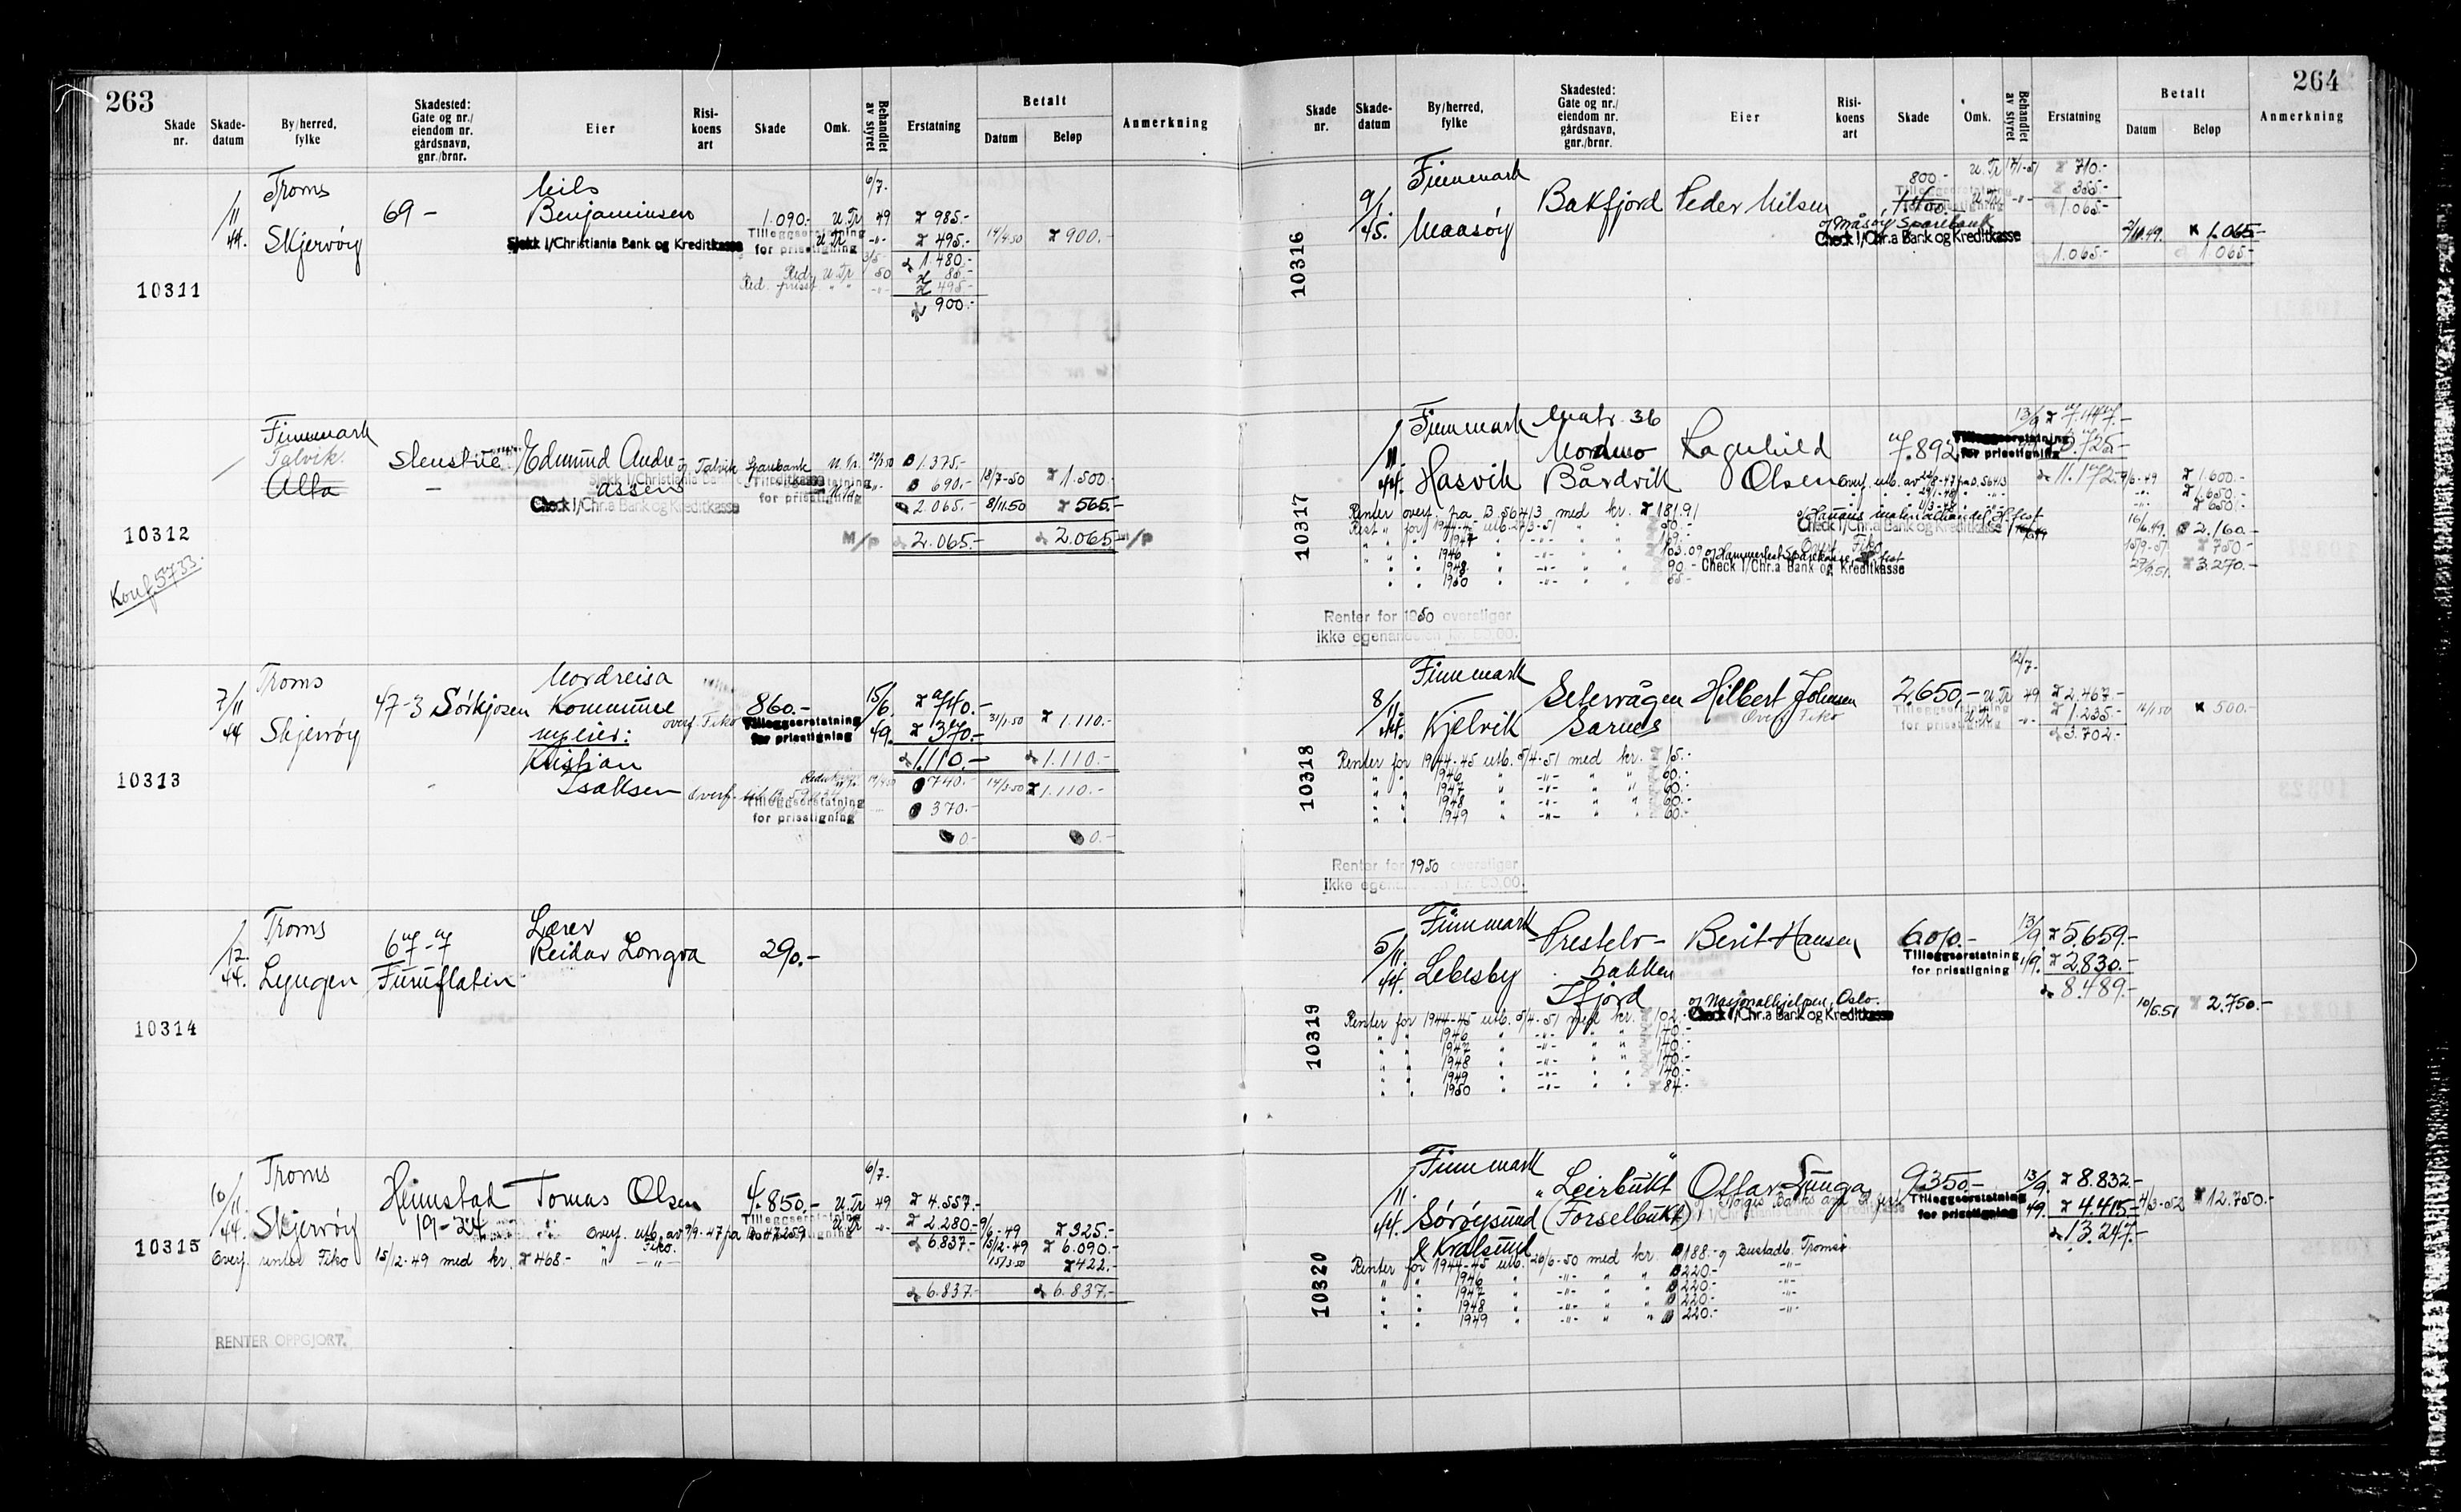 263
Skade nr.
Skade-datum
By/herred, fylke
Skadested: Gate og nr./ eiendom nr. gårdsnavn, gnr./brnr.
Eier
Risi-koens art
Skade
Omk.
Behandlet av styret
Erstatning
Betalt
Datum
Beløp
Anmerkning
10311
1/11 44.
Troms
Skjervöy
69 -
Nils
Benjaminsen
Sjekk 1/Christiania Bank og Kreditkasse
1.090.- U.Tr
6/7. 49
985.-
Tilleggserstatning for prisstigning
U.Tr -"-
495.-
14/4.50
900.-
1.480.-
Red. U.Tr 3/5- 50
85.-
Red. prisst " " -"-
495.-
900.-
10312
Konf. 5733.
Finnmark
Talvik.
Alta
Edmund Andre-
assen
Talvik Sparebank
Sjekk 1/Christiania Bank og Kreditkasse
Tilleggserstatning for prisstigning
Check 1/Chr.a Bank og Kreditkasse
1.375.-
690.-
18/7-50
1.500.-
2.065.-
8/11.50
565.-
M/P
2.065.-
2.065.-
M/P
10313
7/11 44
Troms
Skjervöy
47-3 Sörkjosen
Nordreisa
Kommune
ny eier:
Kristian
Isaksen
overf. Fiko
860.-
Tilleggserstatning for prisstigning
15/6. 49.
740.-
370.-
31/1.50
1.110.-
1.110.-
1.110.-
740.-
14/3.50
1.110.-
Tilleggserstatning for prisstigning
370.-
0.-
0.-
10314
1/12. 44.
Troms
Lyngen
67-7
Furuflaten
Lærer
Reidar Longva
290.-
10315
10/11. 44.
Troms
Skjervöy
Heimstad
19-24
Tomas Olsen
4.850.- U.Tr
6/7. 49
4.557.-
Tilleggserstatning for prisstigning
U.Tr -"-
2.280.-
Overf. utb. av 9/9-47 fra B.47259
9/6-49
325.-
Overf. rente Fiko 15/12-49 med kr. 468.-
" Fiko.
" -"-
6.837.-
15/12-49
6.090.-
15/3.50
422.-
6.837.-
6.837.-
RENTER OPPGJORT.
264
Skade nr.
Skade-datum
By/herred, fylke
Skadested: Gate og nr./ eiendom nr. gårdsnavn, gnr./brnr.
Eier
Risi-koens art
Skade
Omk.
Behandlet av styret
Erstatning
Betalt
Datum
Beløp
Anmerkning
10316
9/1 45.
Finnmark
Maasöy
Bakfjord
Peder Nilsen
800.-
U.Tr 17/1-51
710.-
Tilleggserstatning for prisstigning
U.Tr -"-
355.-
1.065.-
Måsöy Sparebank
Check 1/Chr.a Bank og Kreditkasse
1.065.-
1.065.-
1.065.-
10317
1/11. 44.
Finnmark
Hasvik
Matr. 36
Nordmo
Bårdvik
Ragnhild
Olsen
7.892.-
Tilleggserstatning for prisstigning
13/9
7.447.-
3.725.-
11.172.-
Overf. utb. av 22/8-47 fra B.56413
9/6-49
1.600.-
-"-
1.650.-
-"-
650.-
Renter overf. fra B.56413 med kr. 181.91
Rest " for 1944-45 utb. 27/3-51 " " 90.-
" " 1947 " -"- " "
" " 1946 " -"- " " 103.09
" " 1948 " -"- " " 90.-
" " 1950 " -"- " "
Check 1/Chr.a Bank og Kreditkasse
Overf. Fiko
Hammerfest Sparekasse, H.fest
Check 1/Chr.a Bank og Kreditkasse
16/6.49.
2.160.-
15/9-51
750.-
3.270.-
Renter for 1950 overstiger
ikke egenandelen kr. 50,00.
10318
8/11. 44.
Finnmark
Kjelvik
Setervågen
Sarnes
Hilbert Johnsen
Overf. Fiko
2.650.- U.Tr
12/7. 49
2.467.-
Tilleggserstatning for prisstigning
U.Tr -"-
1.235.-
500.-
3.702.-
Renter for 1944-45 utb. 5/4-51 med kr. 15.-
" " 1946 " -"- " " 60.-
" " 1947 " -"- " " 60.-
" " 1948 " -"- " " 60.-
" " 1949 " -"- " " 60.-
Renter for 1950 overstiger
ikke egenandelen kr. 50,00.
10319
5/11. 44.
Finnmark
Lebesby
Prestelv-
bakken
Ifjord
Berit Hansen
6.010.-
Tilleggserstatning for prisstigning
13/9.
5.659.-
2.830.-
8.489.-
Nasjonalhjelpen, Oslo.
Check 1/Chr.a Bank og Kreditkasse
10/5.51
2.750.-
Renter for 1944-45 utb. 5/4-51 med kr. 102.-
" " 1946 " -"- " " 140.-
" " 1947 " -"- " " 140.-
" " 1948 " -"- " " 140.-
" " 1949 " -"- " " 140.-
" " 1950 " -"- " " 84.-
10320
1/11. 44.
Finnmark
Söröysund
& Kvalsund
"Leirbukt"
(Forselbukt)
Ottar Lunga
9.350.-
Tilleggserstatning for prisstigning
13/9. 49.
8.832.-
4.415.-
4/3-52
12.750.-
13.247.-
Renter for 1944-45 utb. 26/6-50 med kr. 188.- Bustadb. Tromsö
" " 1946 " -"- " " 220.- -"-
" " 1947 " -"- " " 220.- -"-
" " 1948 " -"- " " 220.- -"-
" " 1949 " -"- " " 220.- -"-